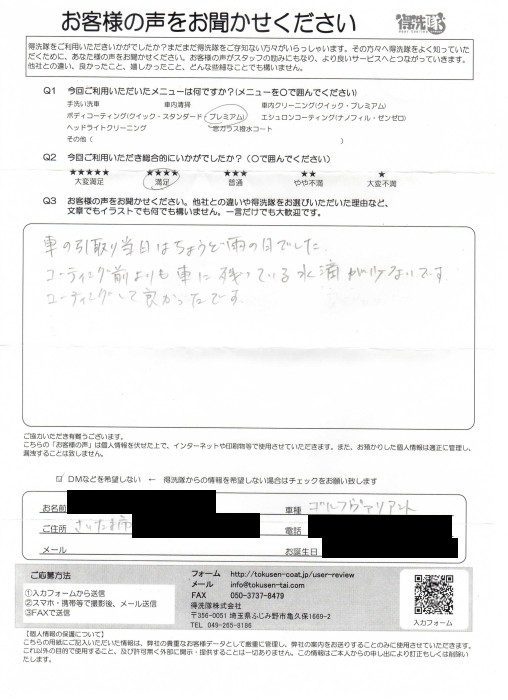 お客様の声をお聞かせください
得洗隊
得洗隊をご利用いただきいかがでしたか？まだまだ得洗隊をご存知ない方々がいらっしゃいます。その方々へ得洗隊をよく知っていた
だくために、あなた様の声をお聞かせください。お客様の声がスタッフの励みにもなり、より良いサービスへとつながっていきます。
他社との違い、良かったこと、嬉しかったこと、どんな些細なことでも構いません。
Q1 今回ご利用いただいたメニューは何ですか？(メニューを○で囲んでください)
手洗い洗車 車内清掃 車内クリーニング(クイック・プレミアム)
ボディコーティング(クイック・スタンダード・プレミアム) エシュロンコーティング(ナノフィル・ゼンゼロ)
ヘッドライトクリーニング 窓ガラス撥水コート
その他（ ）
Q2 今回ご利用いただき総合的にいかがでしたか？（○で囲んでください）
★★★★★ ★★★★ ★★★ ★★ ★
大変満足 満足 普通 やや不満 大変不満
Q3 お客様の声をお聞かせください。他社との違いや得洗隊をお選びいただいた理由など、
文章でもイラストでも何でも構いません。一言だけでも大歓迎です。
車の引取り当日はちょうど雨の日でした
コーティング前よりも車に残っている水滴が少ないです
コーティングして良かったです
ご協力いただき有難うございます。
こちらの「お客様の声」は個人情報を伏せた上で、インターネットや印刷物等で使用させていただきます。また、お預かりした個人情報は適正に管理し、
漏洩することは致しません。
DMなどを希望しない ← 得洗隊からの情報を希望しない場合はチェックをお願い致します
お名前 車種 ゴルフヴァリアント
ご住所 さいたま市 電話
メール お誕生日
ご応募方法
①入力フォームから送信
②スマホ・携帯等で撮影後、メール送信
③FAXで送信
フォーム http://tokusen-coat.jp/user-review
メール info@tokusen-tai.com
FAX 050-3737-8479
得洗隊株式会社
〒356-0051 埼玉県ふじみ野市亀久保1669-2
TEL 049-265-8186
入力フォーム
【個人情報の保護について】
こちらの用紙にご記入いただいた情報は、弊社の貴重なお客様データとして厳重に管理し、弊社の案内をお送りすることのみに使用させていただきます。
これ以外の目的で使用すること、及び許可無く外部に開示・提供することは一切ありません。この情報はご本人からの申し出により訂正もしくは削除い
たします。